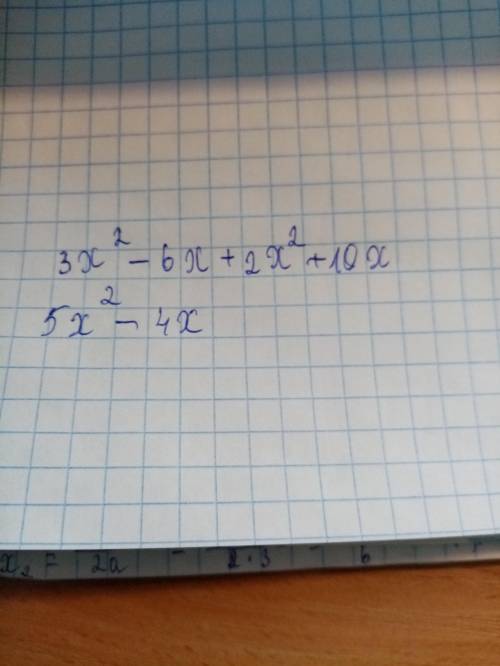 3x² - 6x + 2x² + 10x
5x² - 4x
x₂ = 2a - 2·3 - 6